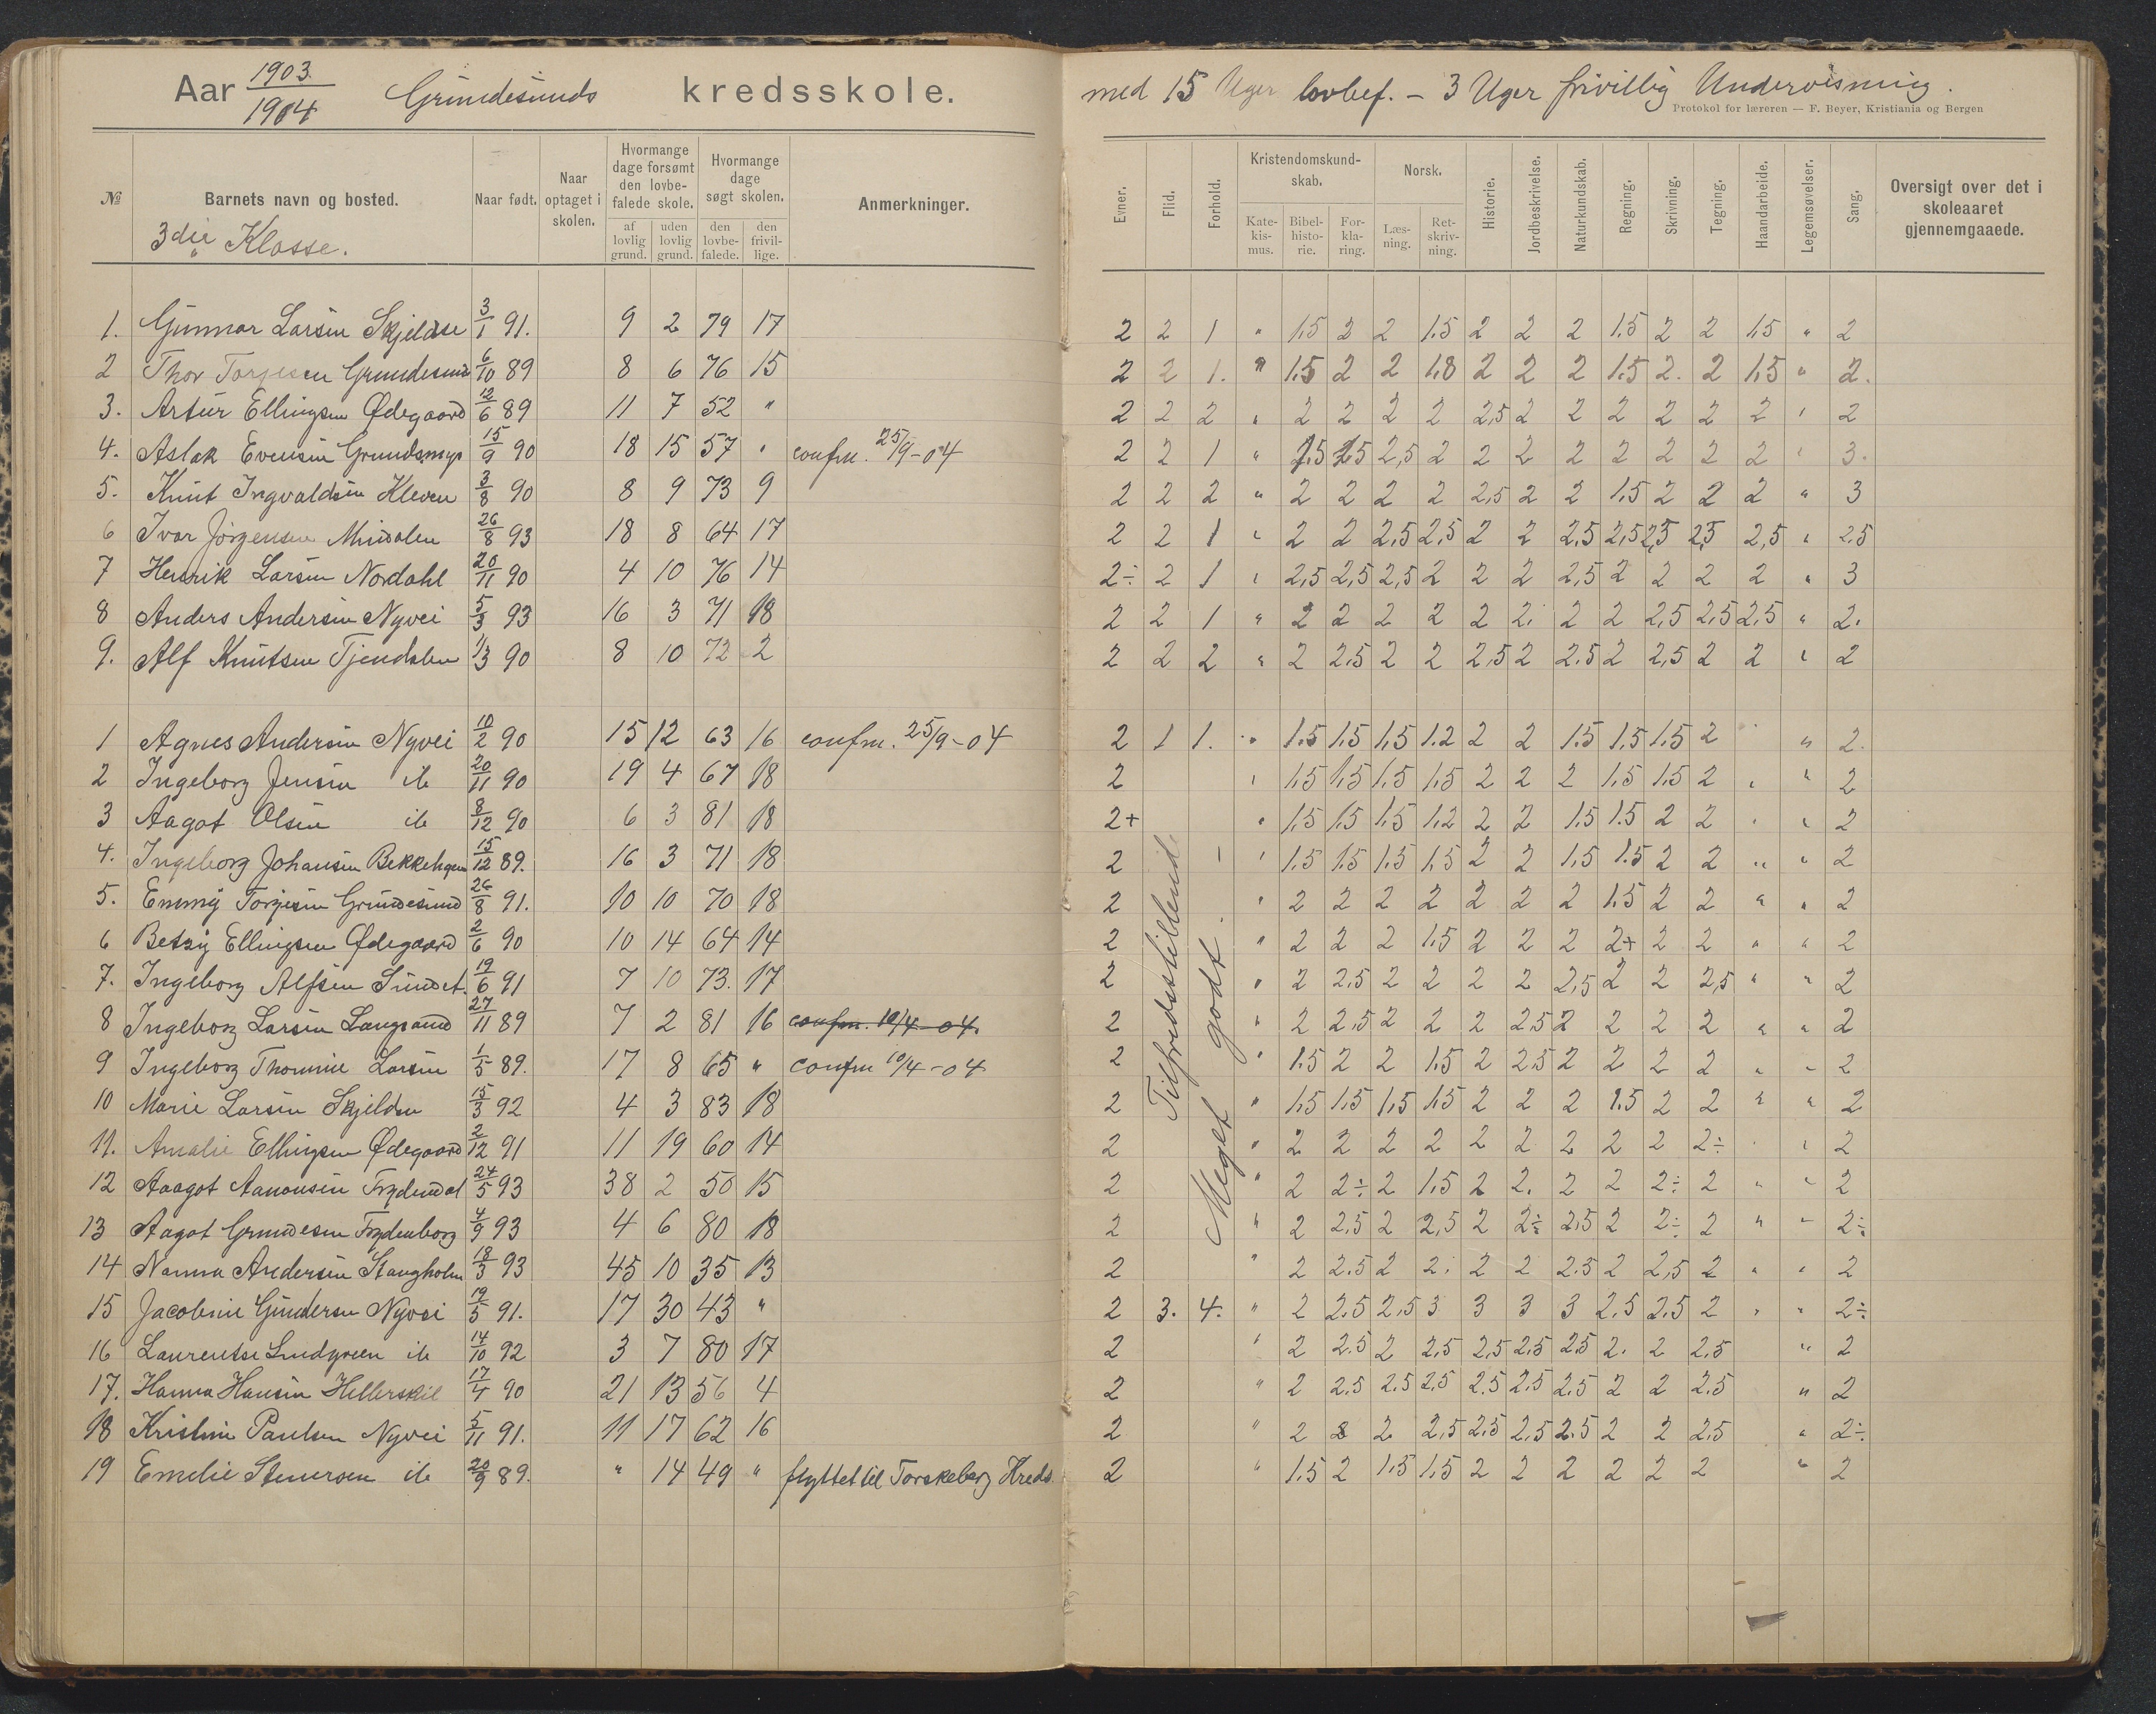 Aar 1903. / 1904 Grundesunds kredsskole.
med 15 Uger lovbef. – 3 Uger frivillig Undervisning.
Protokol for læreren — F. Beyer, Kristiania og Bergen
№ Barnets navn og bosted. Naar født. Naar optaget i skolen. Hvormange dage forsømt den lovbefalede skole. af lovlig grund. uden lovlig grund. Hvormange dage søgt skolen. den lovbefalede. den frivillige. Anmerkninger.
Evner. Flid. Forhold. Kristendomskundskab. Katekismus. Bibelhistorie. Forklaring. Norsk. Læsning. Retskrivning. Historie. Jordbeskrivelse. Naturkundskab. Regning. Skrivning. Tegning. Haandarbeide. Legemsøvelser. Sang. Oversigt over det i skoleaaret gjennemgaaede.
3die Klasse.
1. Gunnar Larsen Skjeldse 3/1 91. 9 2 79 17 2 2 1 " 1.5 2 2 1.5 2 2 2 1.5 2 2 1.5 " 2
2 Thor Torjesen Grundesund 6/10 89 8 6 76 15 2 2 1. " 1.5 2 2 1.8 2 2 2 1.5 2. 2 1.5 " 2.
3. Artur Ellingsen Ødegaard 12/6 89 11 7 52 " 2 2 2 " 2 2 2 2 2,5 2 2 2 2 2 2 " 2
4. Aslak Evensen 15/9 90 18 15 57 " confm. 25/9-04 2 2 1 " 2,5 2 2 2 2 2 2 2 2 " 3.
5. Knut Ingvaldsen Kleven 3/8 90 8 9 73 9 2 2 2 " 2 2 2 2 2,5 2 2 1.5 2 2 2 " 3
6 Ivar Jörgensen Mindalen 26/8 93 18 8 64 17 2 2 1 " 2 2 2,5 2,5 2 2 2.5 2,5 2,5 2,5 2,5 " 2.5
7 Henrik Larsen Nordahl 20/11 90 4 10 76 14 2÷ 2 1 " 2,5 2,5 2,5 2 2 2 2,5 2 2 2 2 " 3
8 Anders Andersen Nyvei 5/3 93 16 3 71 18 2 2 1 " 2 2 2 2 2 2. 2 2 2,5 2,5 2,5 " 2.
9. Alf Knutsen Tjendalen 1/3 90 8 10 72 2 2 2 2 " 2 2.5 2 2 2,5 2 2.5 2 2,5 2 2 " 2
1 Agnes Andersen Nyvei 10/2 90 15 12 63 16 confm. 25/9-04 2 1 1. " 1.5 1.5 1.5 1.2 2 2 1.5 1.5 1.5 2 " " 2.
2 Ingeborg Jensen ib 20/11 90 19 4 67 18 2 " 1.5 1.5 1.5 1.5 2 2 2 1.5 1.5 2 " " 2
3 Aagot Olsen ib 8/12 90 6 3 81 18 2+ " 1.5 1.5 1.5 1.2 2 2 1.5 1.5 2 2 " " 2
4. Ingeborg Johansen Bekkehagen 15/12 89. 16 3 71 18 2 " 1.5 1.5 1.5 1.5 2 2 1.5 1.5 2 2 " " 2
5. Emmy Torjesen Grundesund 26/8 91. 10 10 70 18 2 " 2 2 2 2 2 2 2 1.5 2 2 " " 2
6 Betzy Ellingsen Ødegaard 2/6 90 10 14 64 14 2 " 2 2 2 1.5 2 2 2 2+ 2 2 " " 2
7. Ingeborg Alfsen Sundet. 19/6 91 7 10 73. 17 2 " 2 2.5 2 2 2 2 2,5 2 2 2,5 " " 2
8 Ingeborg Larsen Langsand 27/11 89 7 2 81 16 confm. 10/4-04. 2 " 2 2,5 2 2 2 2,5 2 2 2 2 " " 2
9 Ingeborg Thomine Larsen 1/5 89. 17 8 65 " confm 10/4-04 2 " 1.5 2 2 1.5 2 2,5 2 2 2 2 " " 2
10 Marie Larsen Skjeldsen 15/3 92 4 3 83 18 2 " 1.5 1.5 1.5 1.5 2 2 2 1.5 2 2 " " 2
11. Amalie Ellingsen Ødegaard 2/12 91 11 19 60 14 2 " 2 2 2 2 2 2 2 2 2 2÷ " " 2
12 Aaagot Aanonsen Frydendal 24/5 93 38 2 50 15 2 " 2 2÷ 2 1.5 2 2. 2 2 2÷ 2 " " 2
13 Aagot Grundesen Frydenborg 4/9 93 4 6 80 18 2 " 2 2.5 2 2,5 2 2÷ 2,5 2 2÷ 2 " " 2÷
14 Nanna Andersen Stangholm 18/3 93 45 10 35 13 2 " 2 2.5 2 2. 2 2 2.5 2 2,5 2 " " 2
15 Jacobine Gundersen Nyvei 19/5 91. 17 30 43 " 2 3. 4. " 2 2.5 2.5 3 3 3 3 2.5 2.5 2 " " 2÷
16 Laurentse Lindgreen ib 14/10 92 3 7 80 17 2 " 2 2.5 2 2,5 2,5 2,5 2.5 2. 2 2.5 " 2
17. Hanna Hansen Hellerskil 17/4 90 21 13 56 4 2 " 2 2.5 2.5 2.5 2.5 2.5 2.5 2 2 2.5 " 2
18 Kristine Paulsen Nyvei 5/11 91. 11 17 62 16 2 " 2 2 2 2,5 2.5 2.5 2.5 2 2 2.5 " 2÷
19 Emelie Stenersen ib 20/9 89. " 14 49 " flyttet til Torskeberg Kreds. 2 " 1.5 2 1.5 1.5 2 2 2 2 2 2 " 2
Tilfredsstillend
Meget godt.